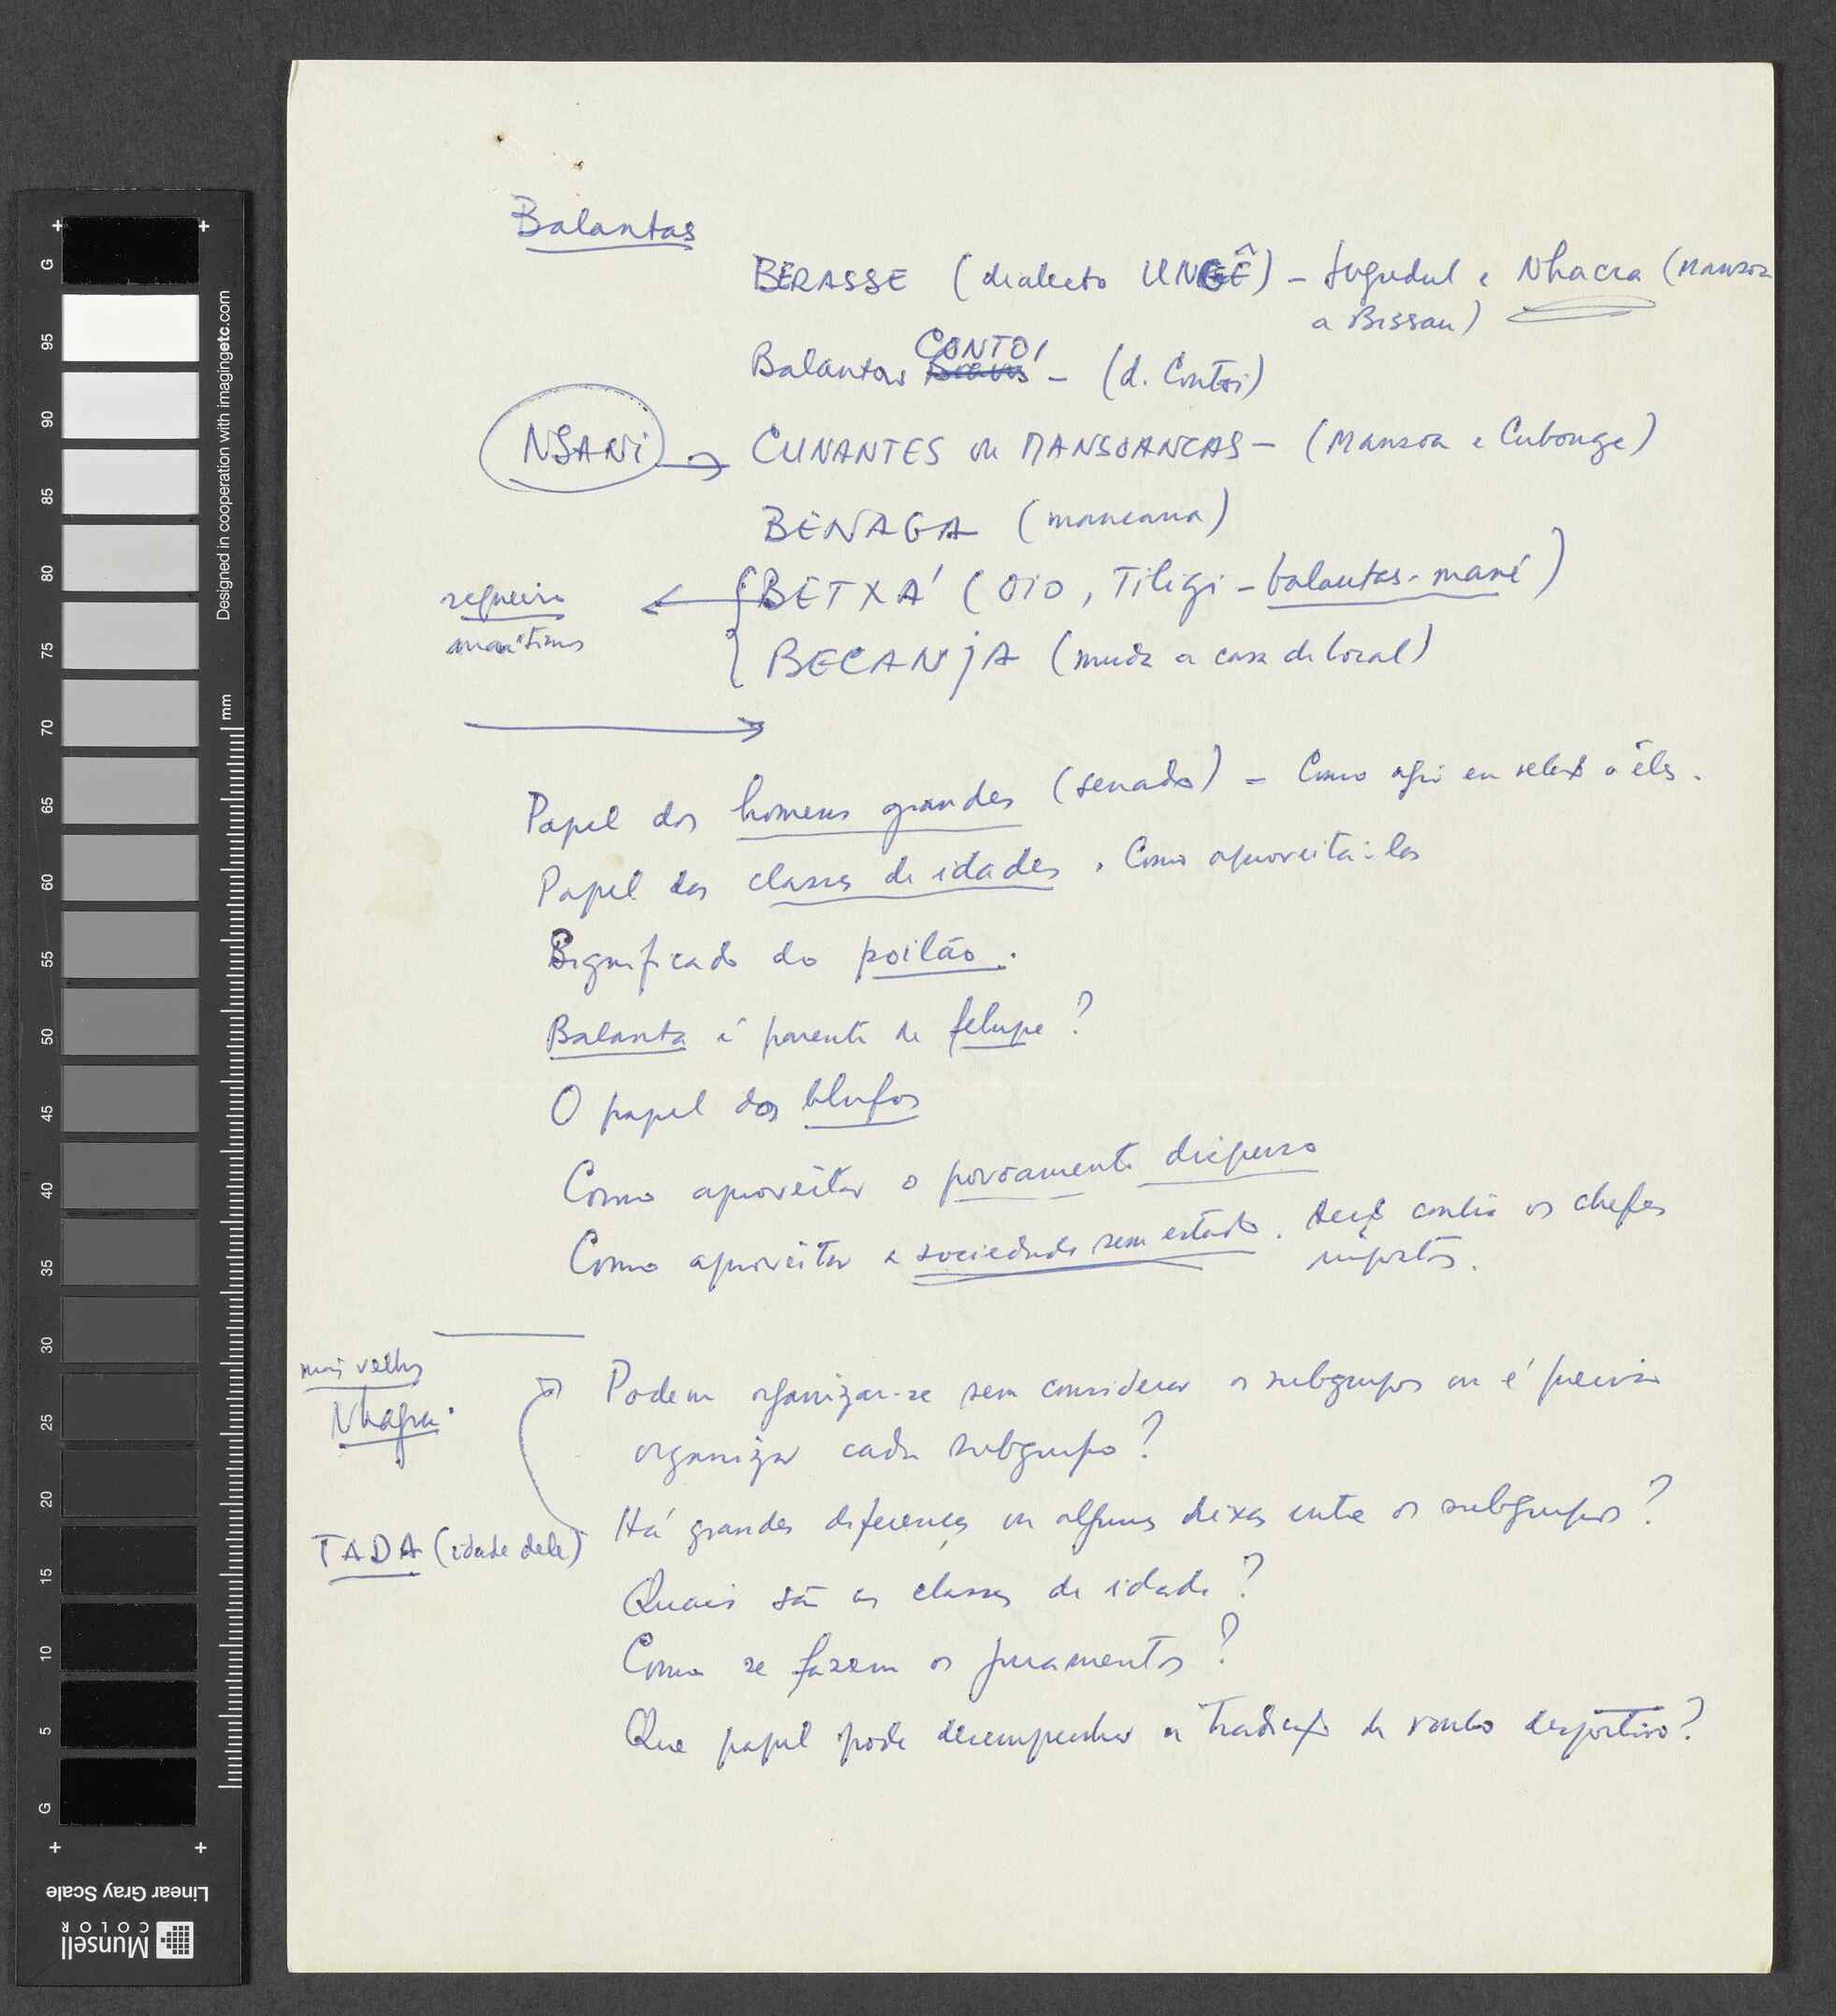 Balantas
BERASSE (dialecto UNGÊ) - Jugudul e Nhacra (Mansoa
a Bissau)
CONTOI
Balantas - (d. Contoi)
NSANI → CUNANTES ou MANSOANCAS - (Mansoa e Cubonge)
BENAGA (mancana)
BETXÁ (OIO, Tiligi - balantas-mané)
marítimos
BECANJA (muda a casa de local)
Papel dos homens grandes (senado) - Como agir em relação a êles.
Papel das classes de idades. Como aproveitá-las
Significado do poilão.
Balanta é parente de felupe?
O papel dos blufos
Como aproveitar o povoamento disperso
Como aproveitar a sociedade sem estado. contra os chefes
impostos.
mais velhos
Podem organizar-se sem considerar os subgrupos ou é preciso
organizar cada subgrupo?
Há grandes diferenças ou algumas entre os subgrupos?
TADA (idade dele)
Quais são as classes de idade?
Como se fazem os juramentos?
Que papel pode desempenhar a tradição de roubo desportivo?
G
95
90
85
80
75
70
65
60
55
50
45
40
35
30
25
20
15
10
5
G
mm
Designed in cooperation with imagingetc.com
Linear Gray Scale
Munsell
COLOR